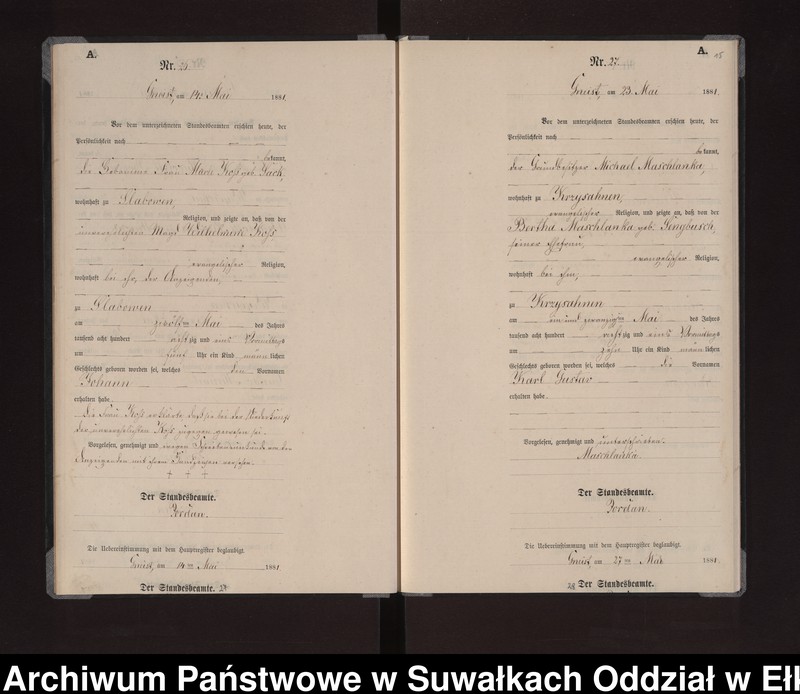 A.
Nr.
Gneist, am 14. Mai 1881.
Vor dem unterzeichneten Standesbeamten erschien heute, der
Persönlichkeit nach
bekannt,
die Hebamme Frau Marie Koß geb.
wohnhaft zu Slabowen,
Religion, und zeigte an, daß von der
unverehelichten Magd Wilhelmine Koß
evangelischer Religion,
wohnhaft bei ihr, der Anzeigenden,
zu Slabowen
am zwölften Mai des Jahres
tausend acht hundert achtzig und eins Vormittags
um fünf Uhr ein Kind männlichen
Geschlechts geboren worden sei, welches den Vornamen
Johann
erhalten habe.
Die Frau Koß erklärte, daß sie bei der Niederkunft
der unverehelichten Koß zugegen gewesen sei.
Vorgelesen, genehmigt und wegen Schreibensunkunde von der
Anzeigenden mit ihrem Handzeichen versehen.
+ + +
Der Standesbeamte.
Jordan.
Die Uebereinstimmung mit dem Hauptregister beglaubigt.
Gneist, am 14ten Mai 1881.
Der Standesbeamte.
A.
Nr. 27.
Gneist, am 23. Mai 1881.
Vor dem unterzeichneten Standesbeamten erschien heute, der
Persönlichkeit nach
bekannt,
der Grundbesitzer Michael Maschlanka,
wohnhaft zu Krzysahnen,
evangelischer Religion, und zeigte an, daß von der
Bertha Maschlanka geb. Sengbusch,
seiner Ehefrau,
evangelischer Religion,
wohnhaft bei ihm,
zu Krzysahnen
am ein und zwanzigsten Mai des Jahres
tausend acht hundert achtzig und eins Vormittags
um zehn Uhr ein Kind männlichen
Geschlechts geboren worden sei, welches die Vornamen
Karl Gustav
erhalten habe.
Vorgelesen, genehmigt und unterschrieben.
Maschlanka.
Der Standesbeamte.
Jordan.
Die Uebereinstimmung mit dem Hauptregister beglaubigt.
Gneist, am 27ten Mai 1881.
Der Standesbeamte.
Archiwum Państwowe w Suwałkach Oddział w Eł